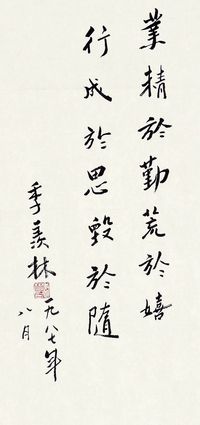 業精於勤荒於嬉
行成於思毀於隨
季羨林
一九八七年
八月